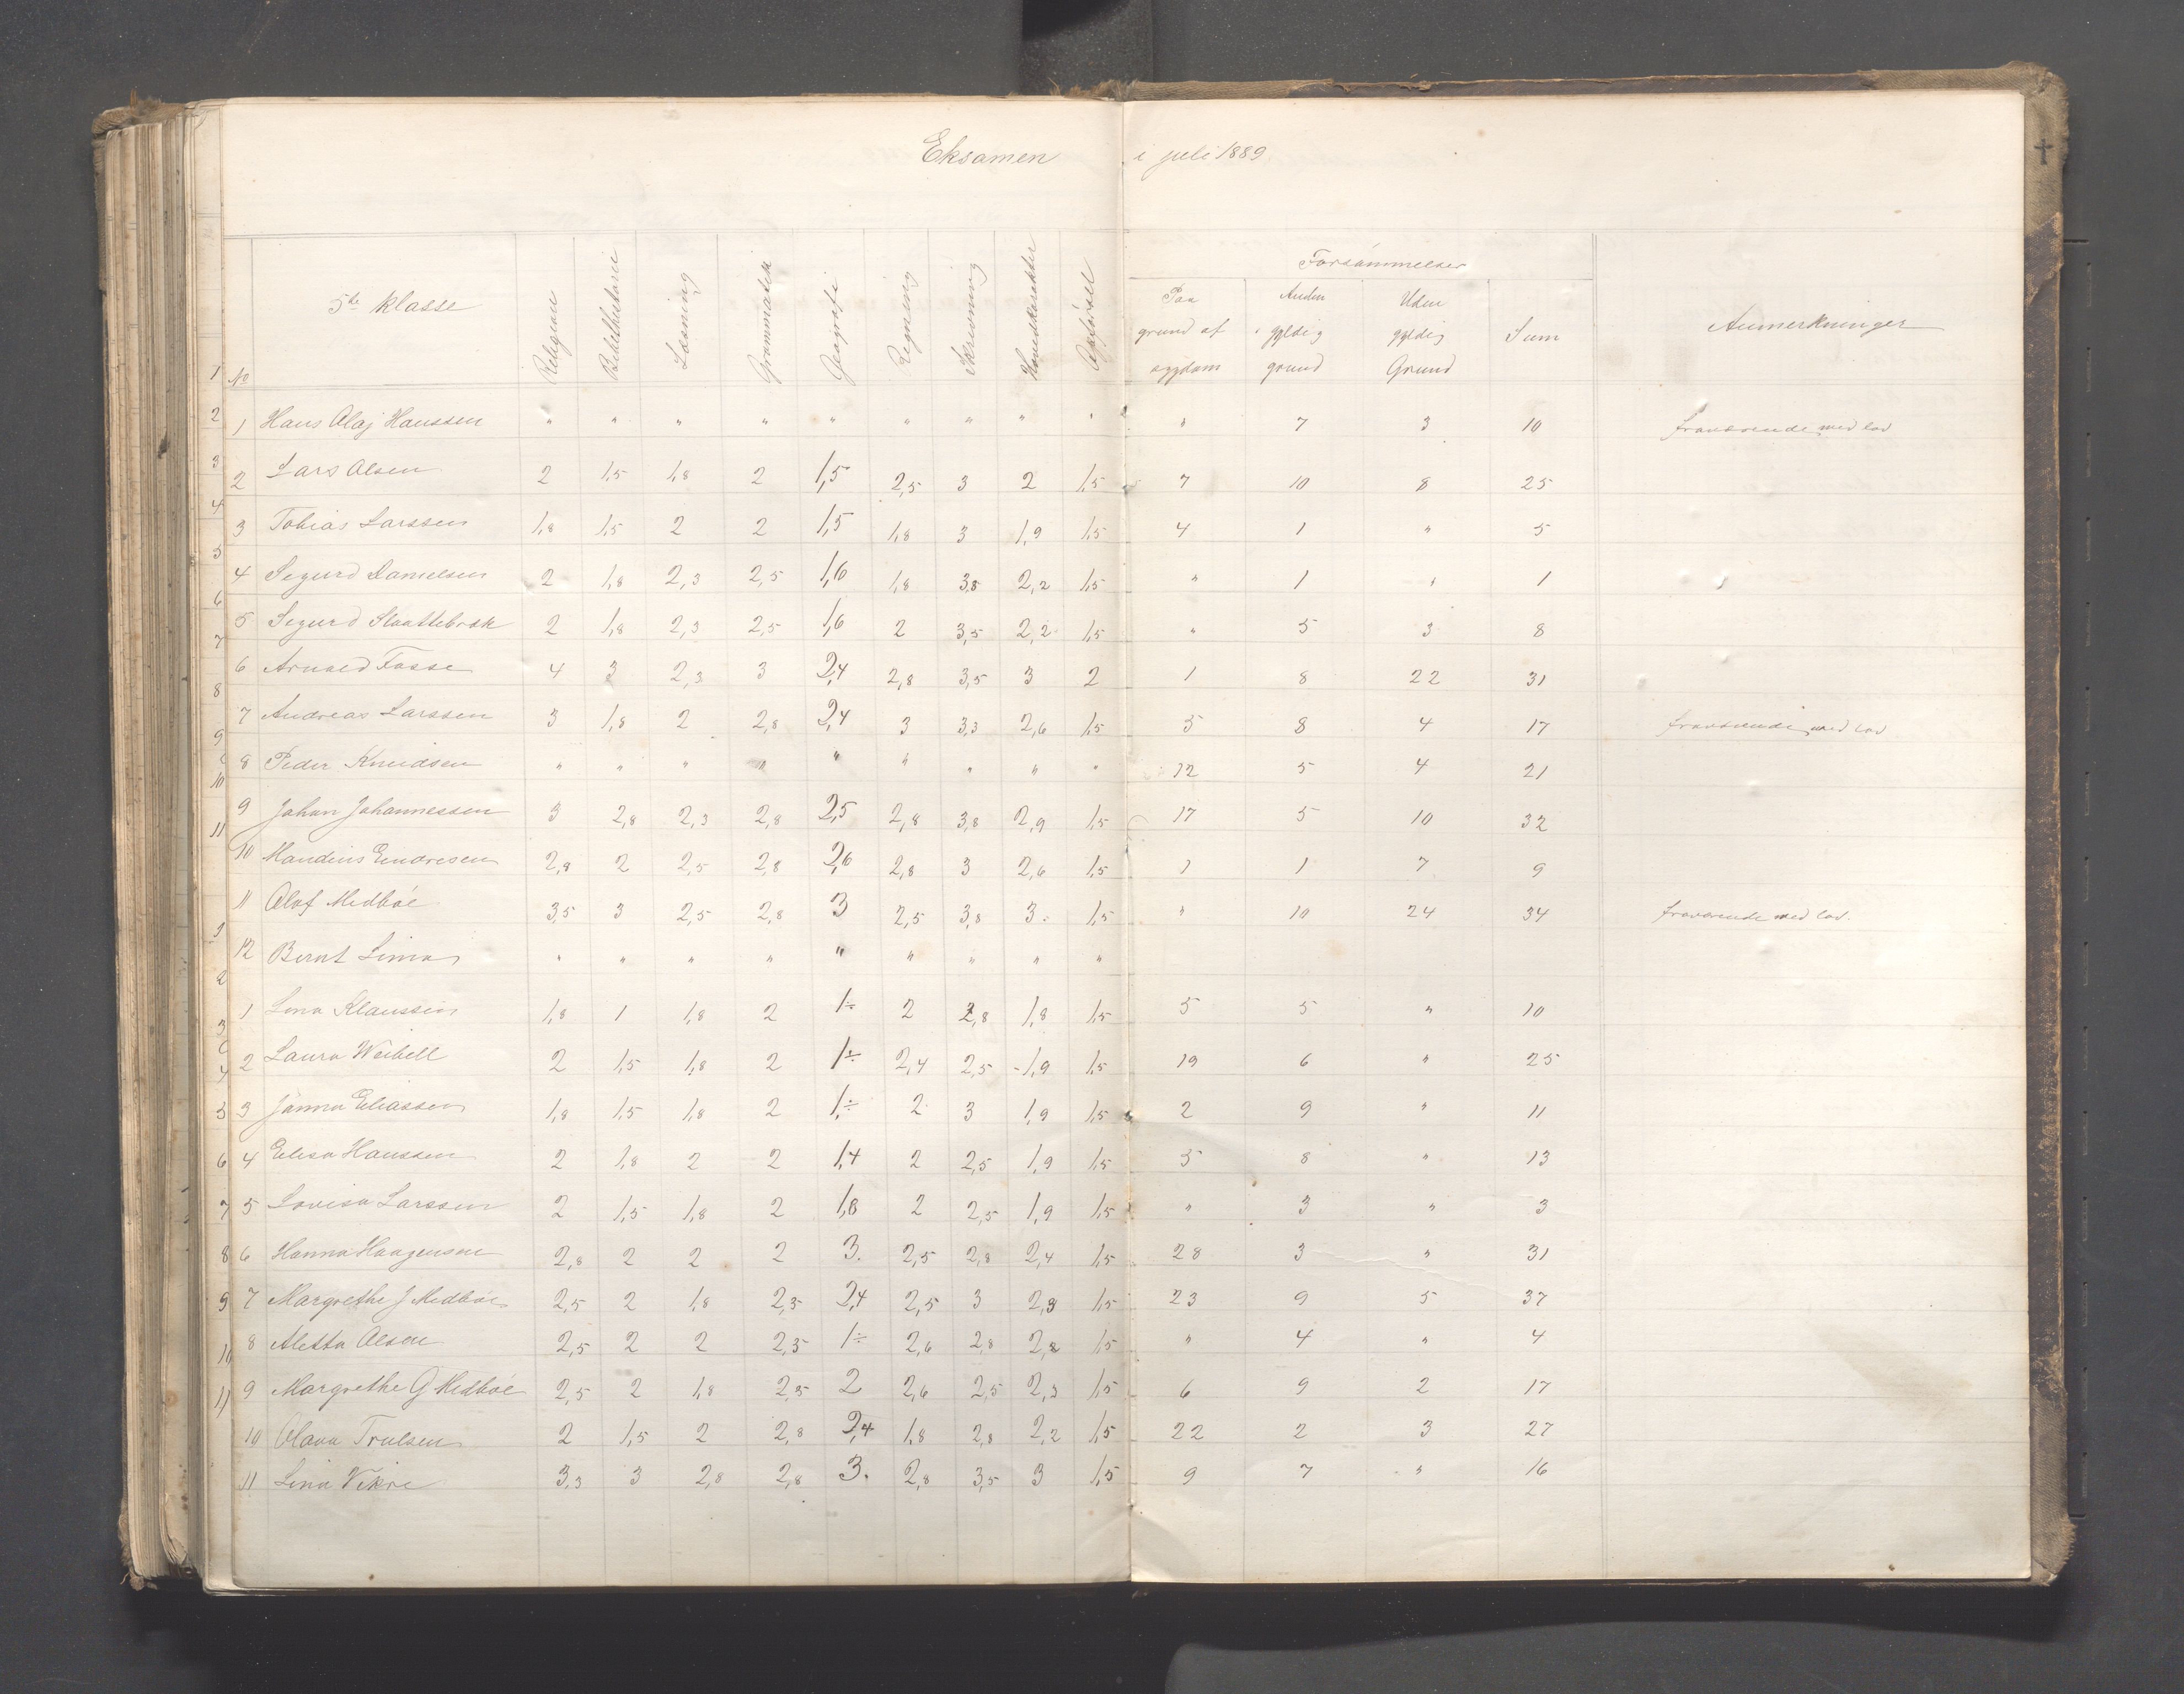 Eksamen i juli 1889
5te klasse
No Religion Bibelhistorie Læsning Grammatik Geografi Regning Skrivning Hovedkarakter Opførsel
Forsømmelser
Paa grund af sygdom Anden gyldig grund Uden gyldig Grund Sum Anmerkninger
1 Hans Olaj Hanssen " " " " " " " " " " 7 3 10 fraværende med lov
2 Lars Olsen 2 1,5 1,8 2 1,5 2,5 3 2 1,5 7 10 8 25
3 Tobias Larssen 1,8 1,5 2 2 1,5 1,8 3 1,9 1,5 4 1 " 5
4 Sigurd Danielsen 2 1,8 2,3 2,5 1,6 1,8 3,8 2,2 1,5 " 1 " 1
5 Sigurd Slaattebrek 2 1,8 2,3 2,5 1,6 2 3,5 2,2 1,5 " 5 3 8
6 Arnold Fosse 4 3 2,3 3 2,4 2,8 3,5 3 2 1 8 22 31
7 Andreas Larssen 3 1,8 2 2,8 2,4 3 3,3 2,6 1,5 5 8 4 17 fraværende med lov
8 Peder Knudsen " " " " " " " " " 12 5 4 21
9 Johan Johannessen 3 2,8 2,3 2,8 2,5 2,8 3,8 2,9 1,5 17 5 10 32
10 Mandius Endresen 2,8 2 2,5 2,8 2,6 2,8 3 2,6 1,5 1 1 7 9
11 Olaf Medbøe 3,5 3 2,5 2,8 3 2,5 3,8 3 1,5 " 10 24 34 fraværende med lov.
12 Bernt Lima " " " " " " " " "
1 Lina Klaussen 1,8 1 1,8 2 1÷ 2 2,8 1,8 1,5 5 5 " 10
2 Laura Weibell 2 1,5 1,8 2 1÷ 2,4 2,5 1,9 1,5 19 6 " 25
3 Janna Eliassen 1,8 1,5 1,8 2 1÷ 2 3 1,9 1,5 2 9 " 11
4 Elisa Hanssen 2 1,8 2 2 1,4 2 2,5 1,9 1,5 5 8 " 13
5 Lovisa Larssen 2 1,5 1,8 2 1,8 2 2,5 1,9 1,5 " 3 " 3
6 Hanna Haagensen 2,8 2 2 2 3. 2,5 2,8 2,4 1,5 28 3 " 31
7 Margrethe J Medbøe 2,5 2 1,8 2,5 2,4 2,5 3 2,3 1,5 23 9 5 37
8 Aletta Olsen 2,5 2 2 2,5 1÷ 2,6 2,8 2,2 1,5 " 4 " 4
9 Margrethe G Medbøe 2,5 2 1,8 2,5 2 2,6 2,5 2,3 1,5 6 9 2 17
10 Olava Trulsen 2 1,5 2 2,8 2,4 1,8 2,8 2,2 1,5 22 2 3 27
11 Lina Vikre 3,3 3 2,8 2,8 3. 2,8 3,5 3 1,5 9 7 " 16